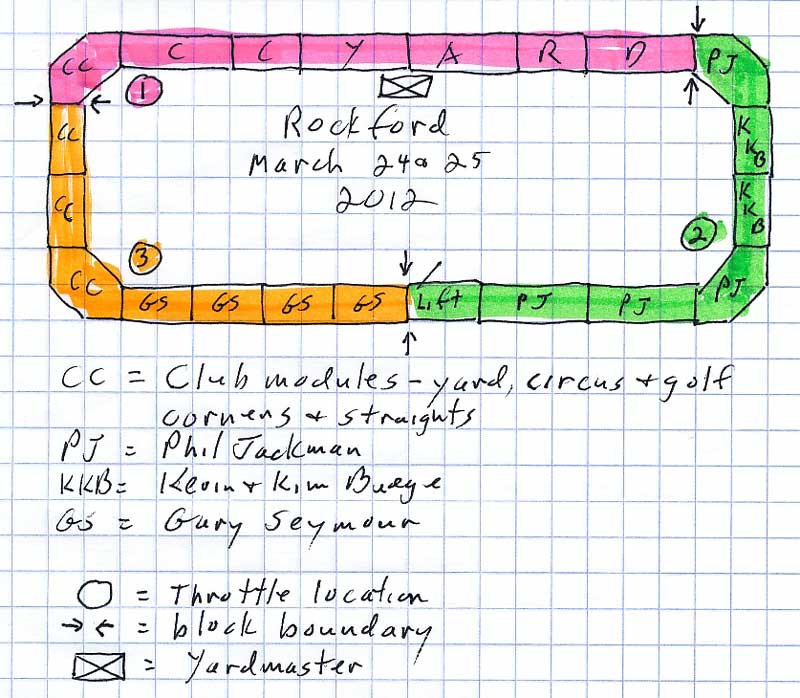 CC C C Y A R D PJ
1
CC
KKB
Rockford
March 24 & 25
2012
CC
KKB
2
3
CC
PJ
GS GS GS GS Lift PJ PJ
CC = Club modules - yard, circus + golf
corners + straights
PJ = Phil Jackman
KKB = Kevin + Kim Buege
GS = Gary Seymour
= Throttle location
→ ← = block boundary
= Yardmaster